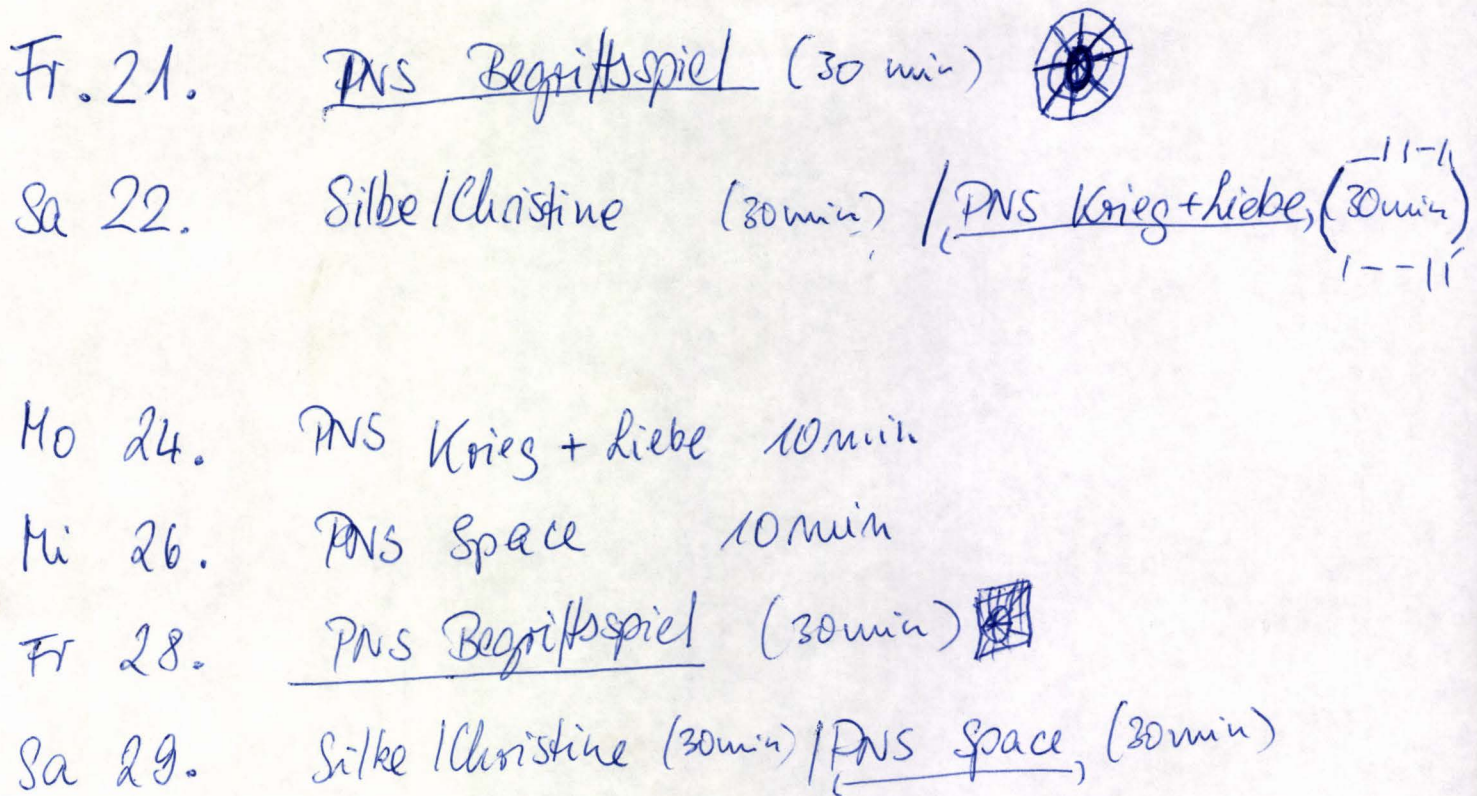 Fr. 21. PNS Begriffsspiel (30 min)
Sa 22. Silke/Christine (30min) / PNS Krieg + Liebe, (30min)
Mo 24. PNS Krieg + Liebe 10 min
Mi 26. PNS Space 10 min
Fr 28. PNS Begriffsspiel (30min)
Sa 29. Silke/Christine (30min) / PNS Space, (30min)